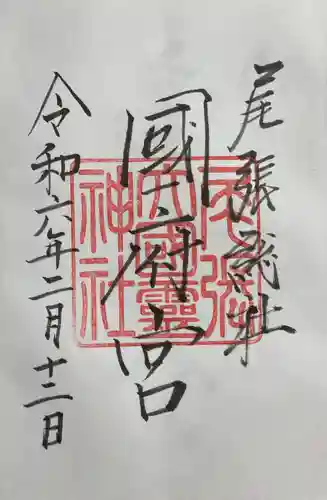 尾張総社
國府宮
令和六年二月十二日
尾張
大國霊
神社